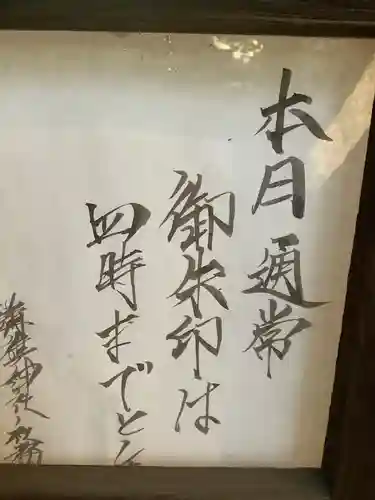 本月通常
御朱印は
四時までと
神社